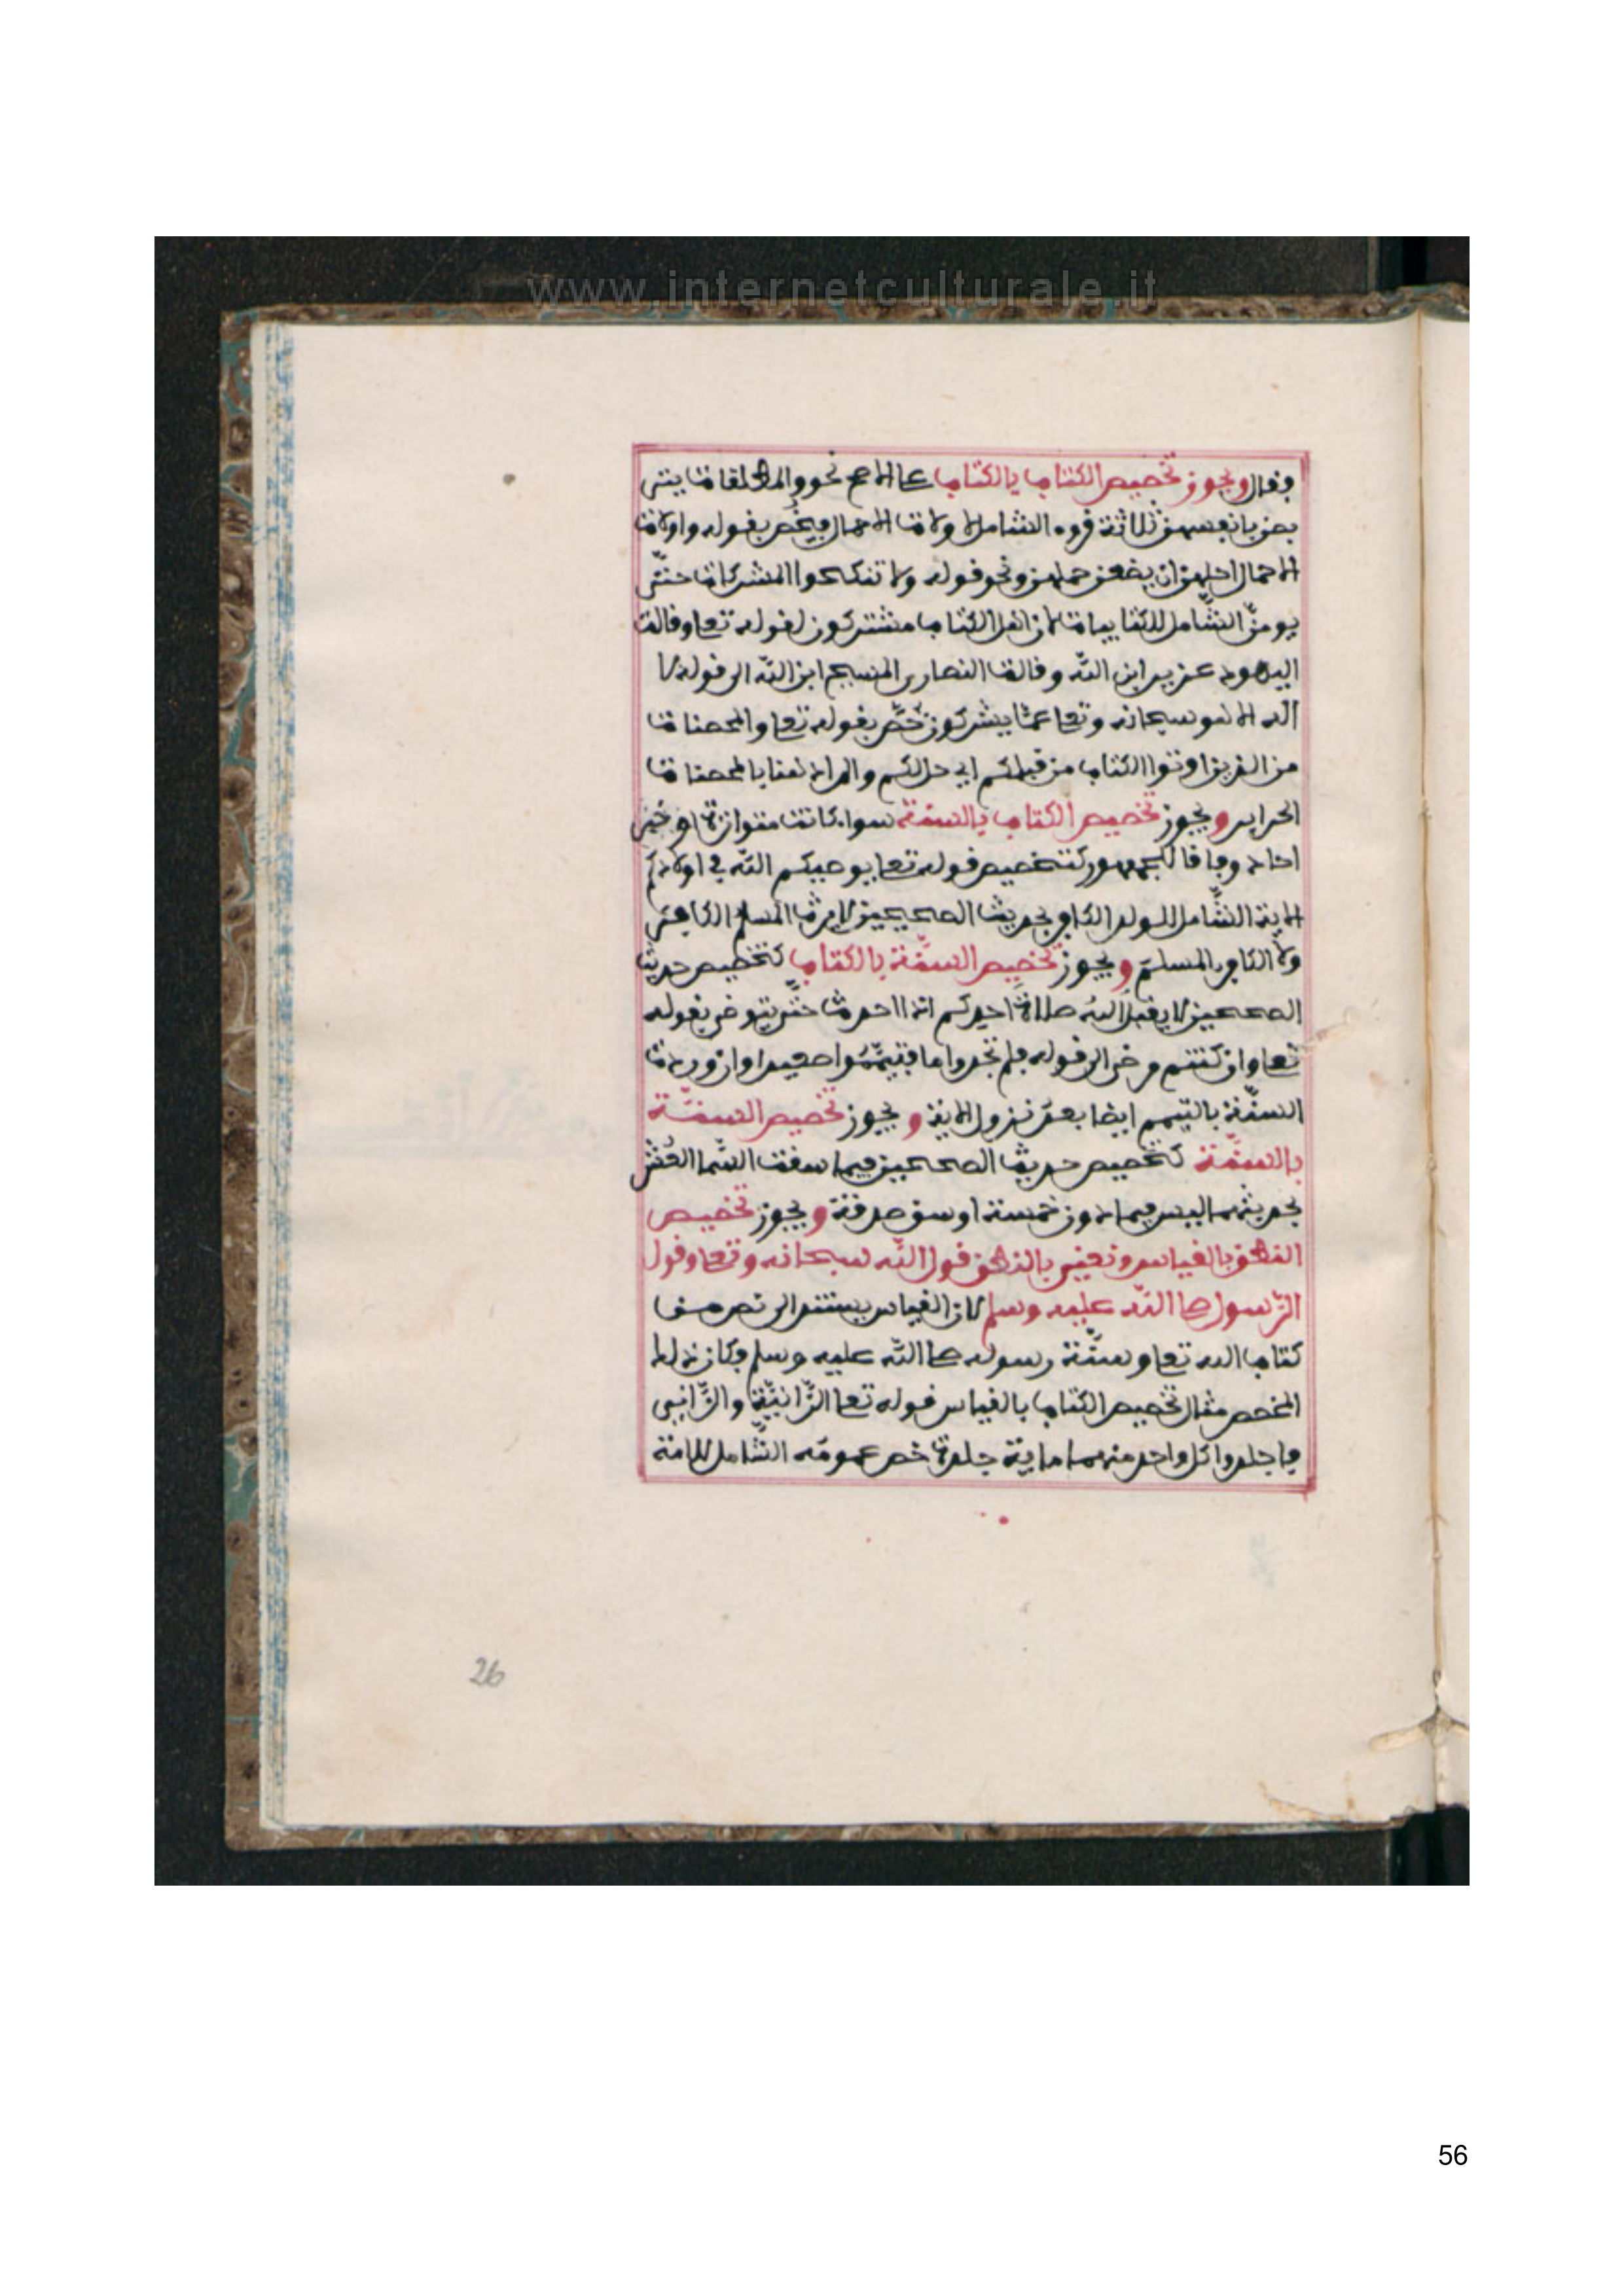 www.internetculturale.it
وقال ويجوز تخصيص الكتاب بالكتاب على الاصح نحو والمطلقات يتر
بصن بانفسهن ثلاثة قروء الشامل لاولات الاحمال فيخص بقوله واولات
الاحمال اجلهن ان يضعن حملهن ونحو قوله ولا تنكحوا المشركات حتى
يومن الشامل للكتابيات لان اهل الكتاب مشتركون لقوله تعلى وقالت
اليهود عزير ابن الله وقالت النصارى المسيح ابن الله الى قوله لا
اله الا هو سبحانه وتعلى عما يشركون خص بقوله تعلى والمحصنات
من الذين اوتوا الكتاب من قبلكم اي حل لكم والمراد هنا بالمحصنات
الحراير ويجوز تخصيص الكتاب بالسنة سواء كانت متواترة او خبر
احاد وفاقا للجمهور كتخصيص قوله تعلى يوصيكم الله في اولادكم
الاية الشامل للولد الكافر بحديث الصحيحين لا يرث المسلم الكافر
ولا الكافر المسلم ويجوز تخصيص السنة بالكتاب كتخصيص حديث
الصحيحين لا يقبل الله صلاة احدكم اذا احدث حتى يتوضى بقوله
تعلى وان كنتم مرضى الى قوله فلم تجدوا ما فتيمموا صعيدا وان وردت
السنة بالتيمم ايضا بعد نزول الاية ويجوز تخصيص السنة
بالسنة كتخصيص حديث الصحيحين فيما سقت السما العشر
بحديثهما ليس فيما دون خمسة اوسق صدقة ويجوز تخصيص
النطق بالقياس ونعني بالنطق قول الله سبحانه وتعلى وقول
الرسول صلى الله عليه وسلم لان القياس يستند الى نص من
كتاب الله تعلى وسنة رسوله صلى الله عليه وسلم فكان ذلك
المخصص مثال تخصيص الكتاب بالقياس قوله تعلى الزانية والزاني
فاجلدوا كل واحد منهما ماية جلدة خص عمومه الشامل للامة
26
56